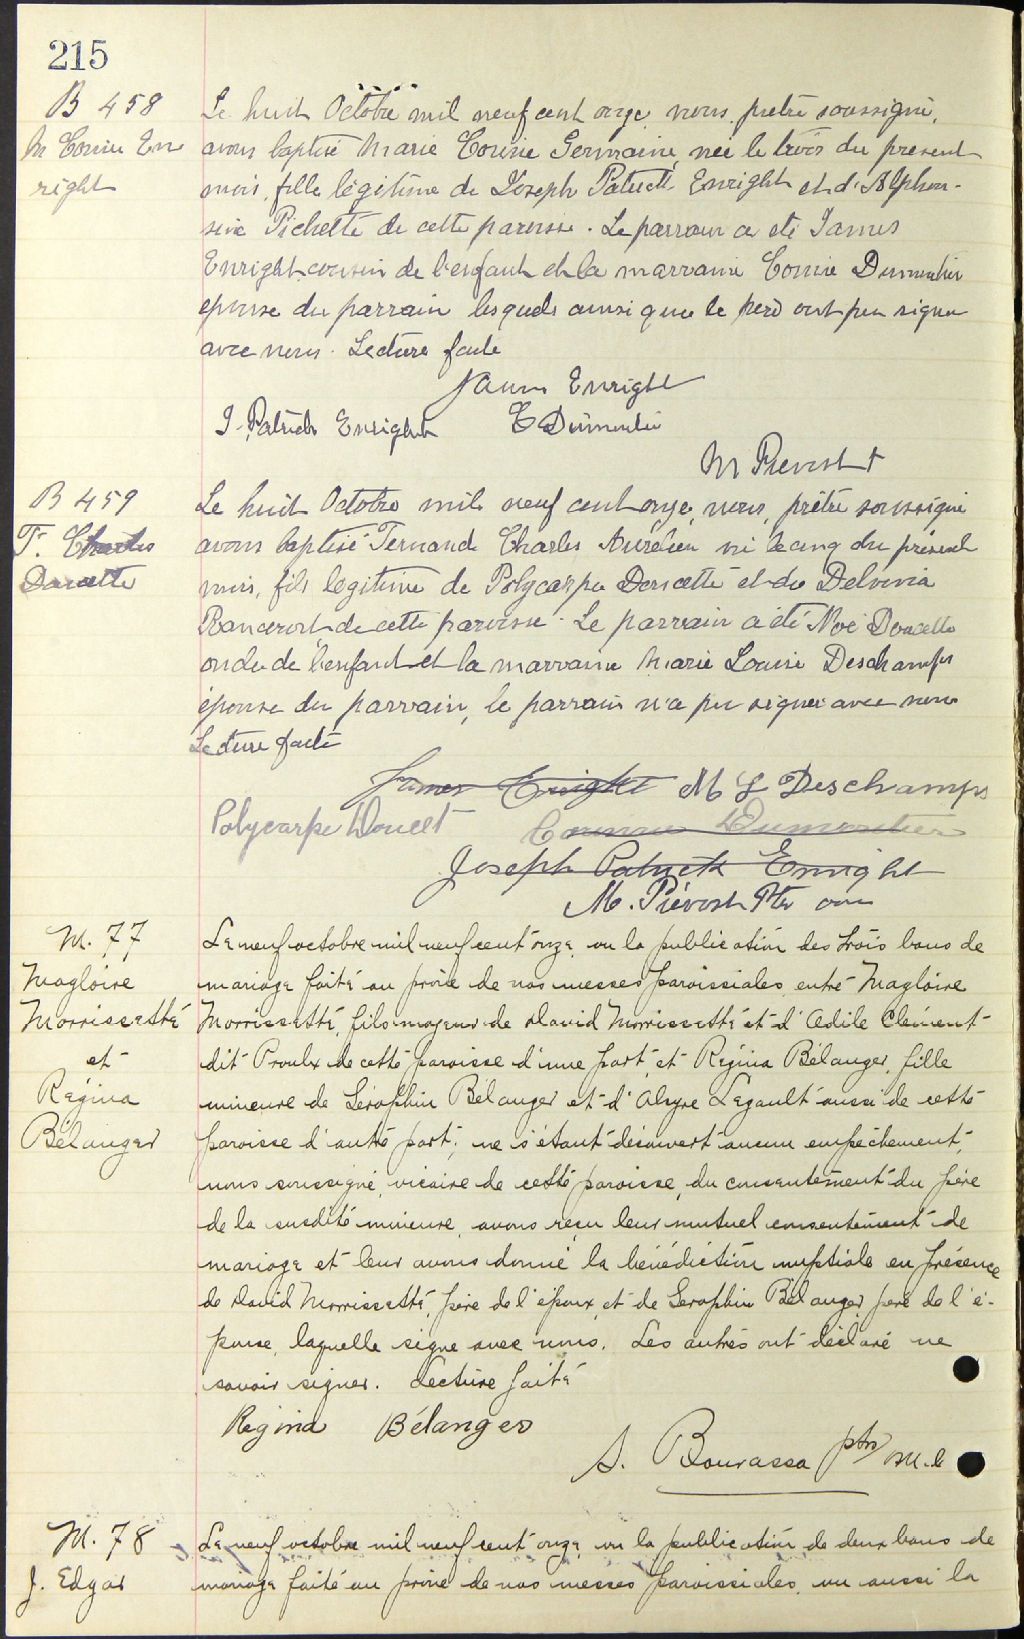 215
B 458
M Corine En
right
Le huit Octobre mil neuf cent onze nous prêtre soussigné,
avons baptisé Marie Corine Germaine née le trois du présent
mois, fille légitime de Joseph Patrick Enright et d'Alphon-
sine Pichette de cette paroisse. Le parrain a été James
Enright cousin de l'enfant et la marraine Corine Dumoutier
épouse du parrain lesquels ainsi que le père ont pu signer
avec nous. Lecture faite
James Enright
J. Patrick Enright C Dumoutier
M Prévost
B 459
F. Charles
Doucette
Le huit Octobre mil neuf cent onze, nous, prêtre soussigné
avons baptisé Fernand Charles Aurélien né le cinq du présent
mois, fils légitime de Polycarpe Doucette et de Delvina
de cette paroisse. Le parrain a été Noé Doucette
oncle de l'enfant et la marraine Marie Louise Deschamps
épouse du parrain, le parrain n'a pu signer avec nous
Lecture faite
James Enright M L Deschamps
Polycarpe Doucet Corinne Dumoutier
Joseph Patrick Enright
M. Prévost Ptre
M. 77
Magloire
Morrissette
et
Régina
Bélanger
Le neuf octobre mil neuf cent onze, vu la publication des trois bans de
mariage faite au prône de nos messes paroissiales, entre Magloire
Morrissette, fils majeur de David Morrissette et d'Odile Clément
dit Proulx de cette paroisse d'une part, et Régina Bélanger, fille
mineure de Séraphin Bélanger et d' Legault aussi de cette
paroisse d'autre part; ne s'étant découvert aucun empêchement,
nous soussigné, vicaire de cette paroisse, du consentement du père
de la susdite mineure, avons reçu leur mutuel consentement de
mariage et leur avons donné la bénédiction nuptiale en présence
de David Morrissette, père de l'époux, et de Seraphin Bélanger, père de l'é-
pouse, laquelle signe avec nous. Les autres ont déclaré ne
savoir signer. Lecture faite
Regina Bélanger
S. Bourassa ptre
M. 78
J. Edgar
Le neuf octobre mil neuf cent onze, vu la publication de deux bans de
mariage faite au prône de nos messes paroissiales, vu aussi la